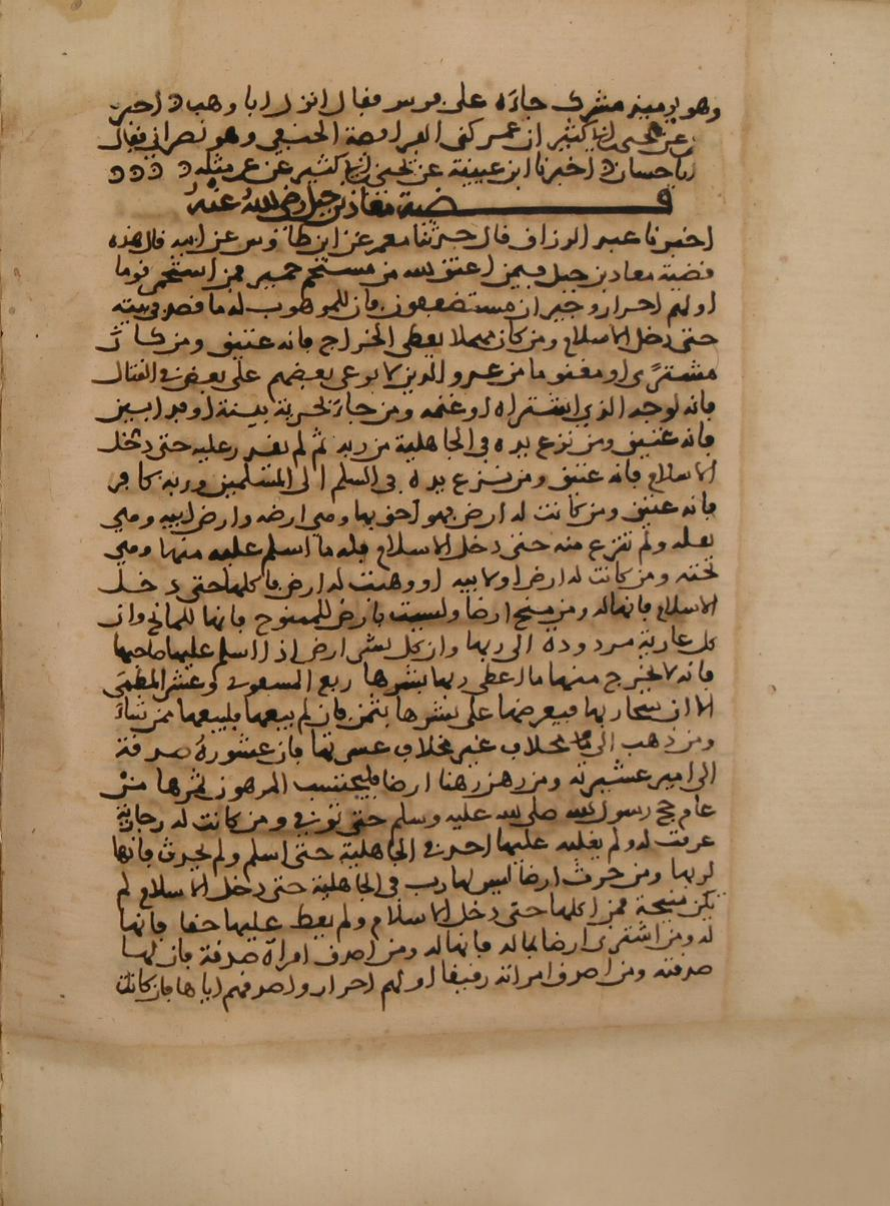 وهو يومئذ مشرك جاءه على فرس فقال انزل ابا وهب اخبرنا
عن يحيى بن ابي كثير ان عمر كنى الفرافصة الحنفي وهو نصراني فقال
ابا حسان اخبرنا ابن عيينة عن يحيى بن ابي كثير عن عمر مثله
قضية معاذ بن جبل رضي الله عنه
اخبرنا عبد الرزاق قال حدثنا معمر عن ابن طاوس عن ابيه قال هذه
قضية معاذ بن جبل فيمن اعتق لله من مستخمر حمير فمن استخمر قوما
اولهم احرار وجيران مستضعفون فان للموهوب له ما قصر في بيته
حتى دخل الاسلام ومن كان مهملا يعطى الخراج فانه عتيق ومن كان
مشترى او مغنوما من عدو الدين لا يدعى بعضهم على بعض في القتال
فانه لوجه الذي اشتراه او غنمه ومن جاء بحرية بينة او فدا بين
فانه عتيق ومن نزع يده في الجاهلية من ربه ثم لم يقدر عليه حتى دخل
الاسلام فانه عتيق ومن نزع يده في السلم الى المسلمين وربه كافر
فانه عتيق ومن كانت له ارض فهو احق بها وهي ارضه وارض ابيه وهي
نعله ولم تنزع منه حتى دخل الاسلام فله ما اسلم عليه منها وهي
تحته ومن كانت له ارض او لابيه او وهبت له ارض فاكلها حتى دخل
الاسلام فانها له ومن منح ارضا وليست بارض للممنوح فانها للمانح وان
كل عارية مردودة الى ربها وان كل بشر ارض اذا اسلم عليها صاحبها
فانه لا يخرج منها ما اعطى ربها بشرها ربع المسقوي وعشر المظمي
الا ان يبيعها ربها فيعرضها على بشرها بثمن فان لم يبيعها فليبعها ممن شاء
ومن ذهب الى مخلاف غير مخلاف عشيرته فان عشوره صدقة
الى امير عشيرته ومن رهن رهنا ارضا فليحتسب المرهون ثمرها من
عام حج رسول الله صلى الله عليه وسلم حتى توفي ومن كانت له جارية
عرفت له ولم يغلبه عليها احد في الجاهلية حتى اسلم ولم يحرث فانها
لربها ومن حرث ارضا ليس لها رب في الجاهلية حتى دخل الاسلام لم
تكن منيحة فمن اكلها حتى دخل الاسلام ولم يعط عليها حقا فانها
له ومن اشترى ارضا بماله فانها له ومن اصدق امراة صدقة فان لها
صدقته ومن اصدق امراته رقيقا اولهم احرار واصدقهم اياها فان كانت